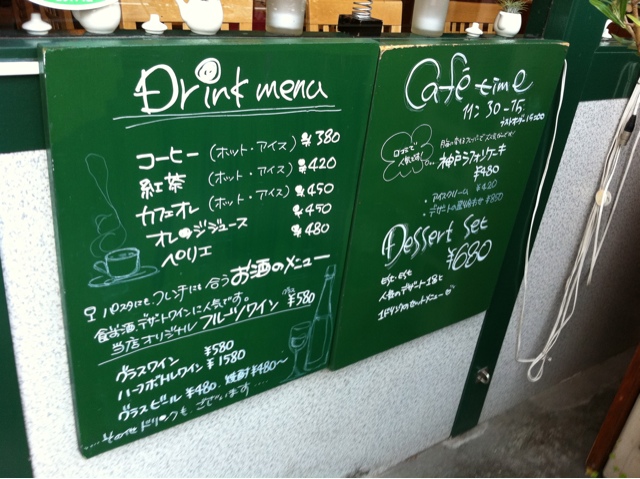 Drink menu
コーヒー (ホット・アイス) ¥380
紅茶 (ホット・アイス) ¥420
カフェオレ (ホット・アイス) ¥450
オレンジジュース ¥450
ペリエ ¥480
お酒のメニュー
パスタにも、フレンチにも合う
食前酒、デザートワインに人気です。
当店オリジナル フルーツワイン ¥580
グラスワイン ¥580
ハーフボトルワイン ¥1580
グラスビール ¥480 焼酎 ¥480〜
その他ドリンクも、ございます....
Café time
11:30-15
口コミで
人気の
神戸シフォンケーキ
¥480
・アイスクリーム ¥420
・デザートの盛り合わせ ¥850
Dessert Set
¥680
人気のデザート
1ドリンクのセットメニュー